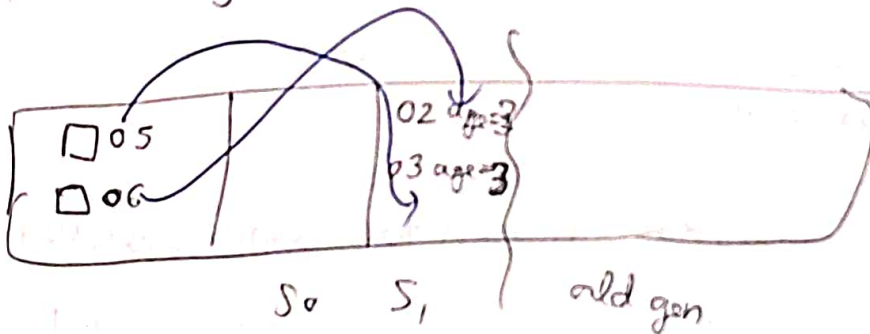 O5
O6
O2 age=3
O3 age=3
S0 S1 old gen